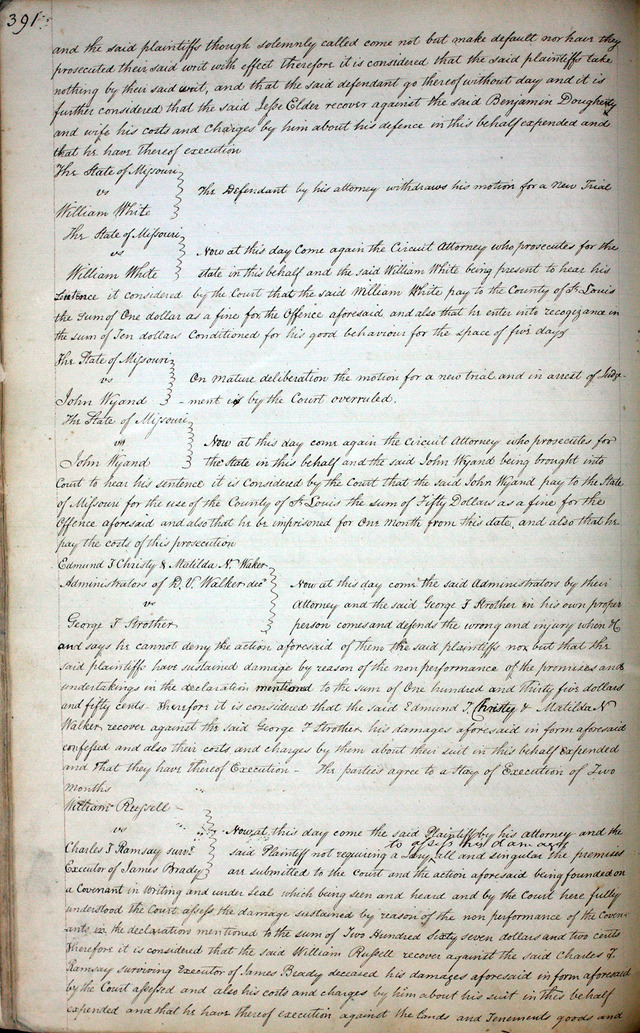 391
and the said plaintiffs though solemnly called come not but make default nor have they
prosecuted their said writ with effect therefore it is considered that the said plaintiffs take
nothing by their said writ, and that the said defendant go thereof without day and it is
further considered that the said Jesse Elder recover against the said Benjamin Dougherty
and wife his costs and charges by him about his defence in this behalf expended and
that he have thereof execution
The State of Missouri
vs The Defendant by his attorney withdraws his motion for a new Trial
William White
The State of Missouri
vs Now at this day Come again the Circuit Attorney who prosecutes for the
William White state in this behalf and the said William White being present to hear his
Sentence it considered by the Court that the said William White pay to the County of St. Louis
the Sum of One dollar as a fine for the Offence aforesaid and also that he enter into recogezance in
the sum of Ten dollars Conditioned for his good behaviour for the space of five days
The State of Missouri
vs On mature deliberation the motion for a new trial and in arrest of Judge-
John Wyand - ment is by the Court overruled.
The State of Missouri
vs Now at this day come again the Circuit Attorney who prosecutes for
John Wyand the State in this behalf and the said John Wyand being brought into
Court to hear his sentence it is considered by the Court that the said John Wyand pay to the State
of Missouri for the use of the County of St Louis the sum of Fifty Dollars as a fine for the
Offence aforesaid and also that he be imprisoned for One Month from this date, and also that he
pay the costs of this prosecution
Edmund T Christy & Matilda N. Waker
Administrators of D. V. Walker decd Now at this day come the said Administrators by their
vs Attorney and the said George F Strother in his own proper
George F Strother person comes and defends the wrong and injury when &C
and says he cannot deny the action aforesaid of them the said plaintiffs nor but that the
said plaintiffs have sustained damage by reason of the non performance of the promises and
undertakings in the declaration mentioned to the sum of One hundred and thirty five dollars
and fifty cents - Therefore it is considered that the said Edmund T. Christy & Matilda N
Walker recover against the said George F Strother his damages aforesaid in form aforesaid
confessed and also their costs and charges by them about their suit in this behalf expended
and that they have thereof Execution - The parties agree to a Stay of Execution of Two
Months
William Russell
vs Now at this day come the said Plaintiff by his attorney and the
to assess his damages
Charles F Ramsay survg said Plaintiff not requiring a Jury all and singular the premises
Executor of James Brady are submitted to the Court and the action aforesaid being founded on
a Covenant in Writing and under seal which being seen and heard and by the Court here fully
understood the Court assess the damage sustained by reason of the non performance of the Coven-
ants in the declaration mentioned to the sum of Two Hundred sixty seven dollars and two cents
Therefore it is considered that the said William Russell recover against the said Charles F.
Ramsay surviving Executor of James Brady deceased his damages aforesaid in form aforesaid
by the Court assessed and also his costs and charges by him about his suit in this behalf
expended and that he have thereof execution against the Lands and Tenements goods and